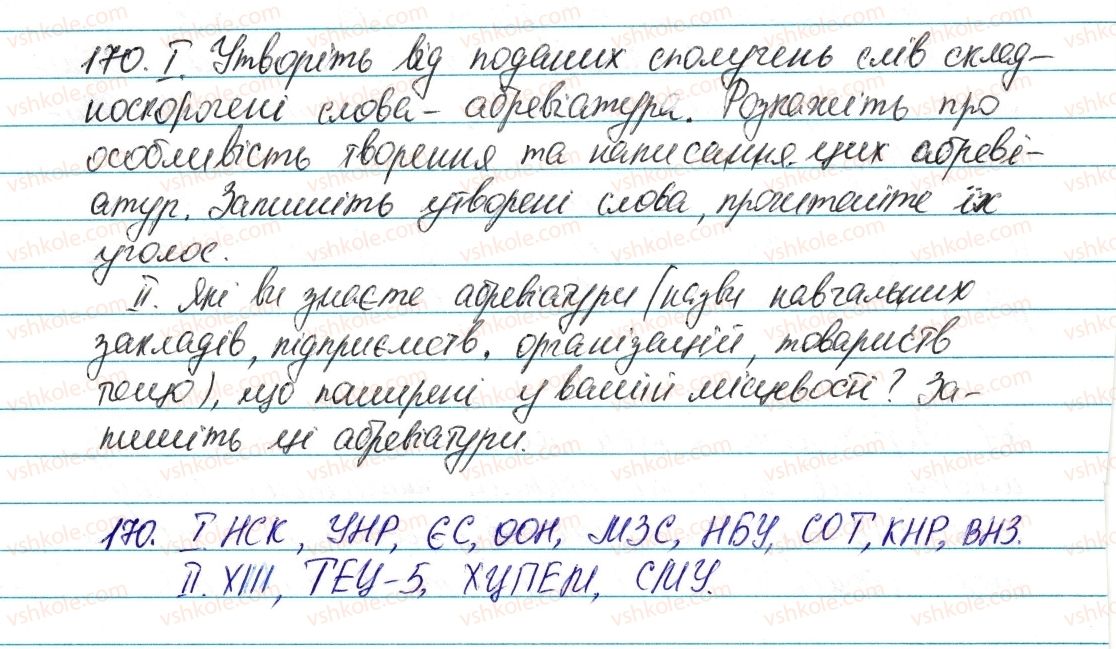 170. I. Утворіть від поданих сполучень слів склад-
носкорочені слова – абревіатура. Розкажіть про
особливість творення та написання цих абреві-
атур. Запишіть утворені слова, прочитайте їх
уголос.
II. Які ви знаєте абревіатури (назви навчальних
закладів, підприємств, організацій, товариств
тощо), що поширені у вашій місцевості? За-
пишіть ці абревіатури.
170. I. НСК, УНР, ЄС, ООН, МЗС, НБУ, СОТ, КНР, ВНЗ.
II. ХІІІ, ТЕЦ-5, ХЦПЕМ, СМУ.